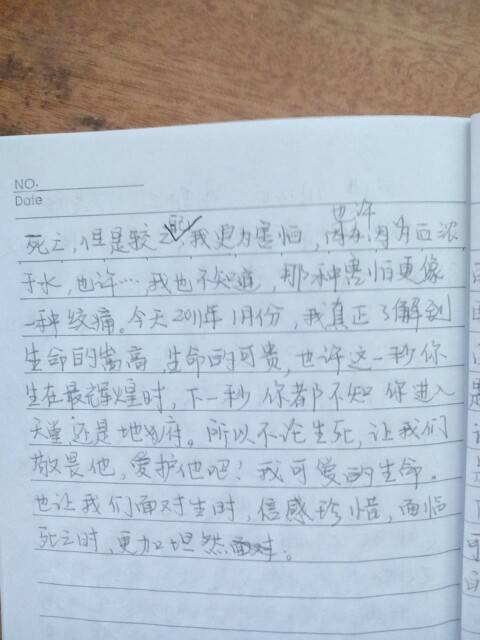 NO.
Date
也许
死亡,但是较之,我更为害怕,因为血浓
于水,也许…,我也不知道,那种害怕更像
一种绞痛。今天2011年1月份,我真正了解到
生命的崇高,生命的可贵,也许这一秒你
生在最辉煌时,下一秒你都不知你进入
天堂还是地府。所以不论生死,让我们
敬畏他,爱护他吧!我可爱的生命.
也让我们面对生时,倍感珍惜,面临
死亡时,更加坦然面对。